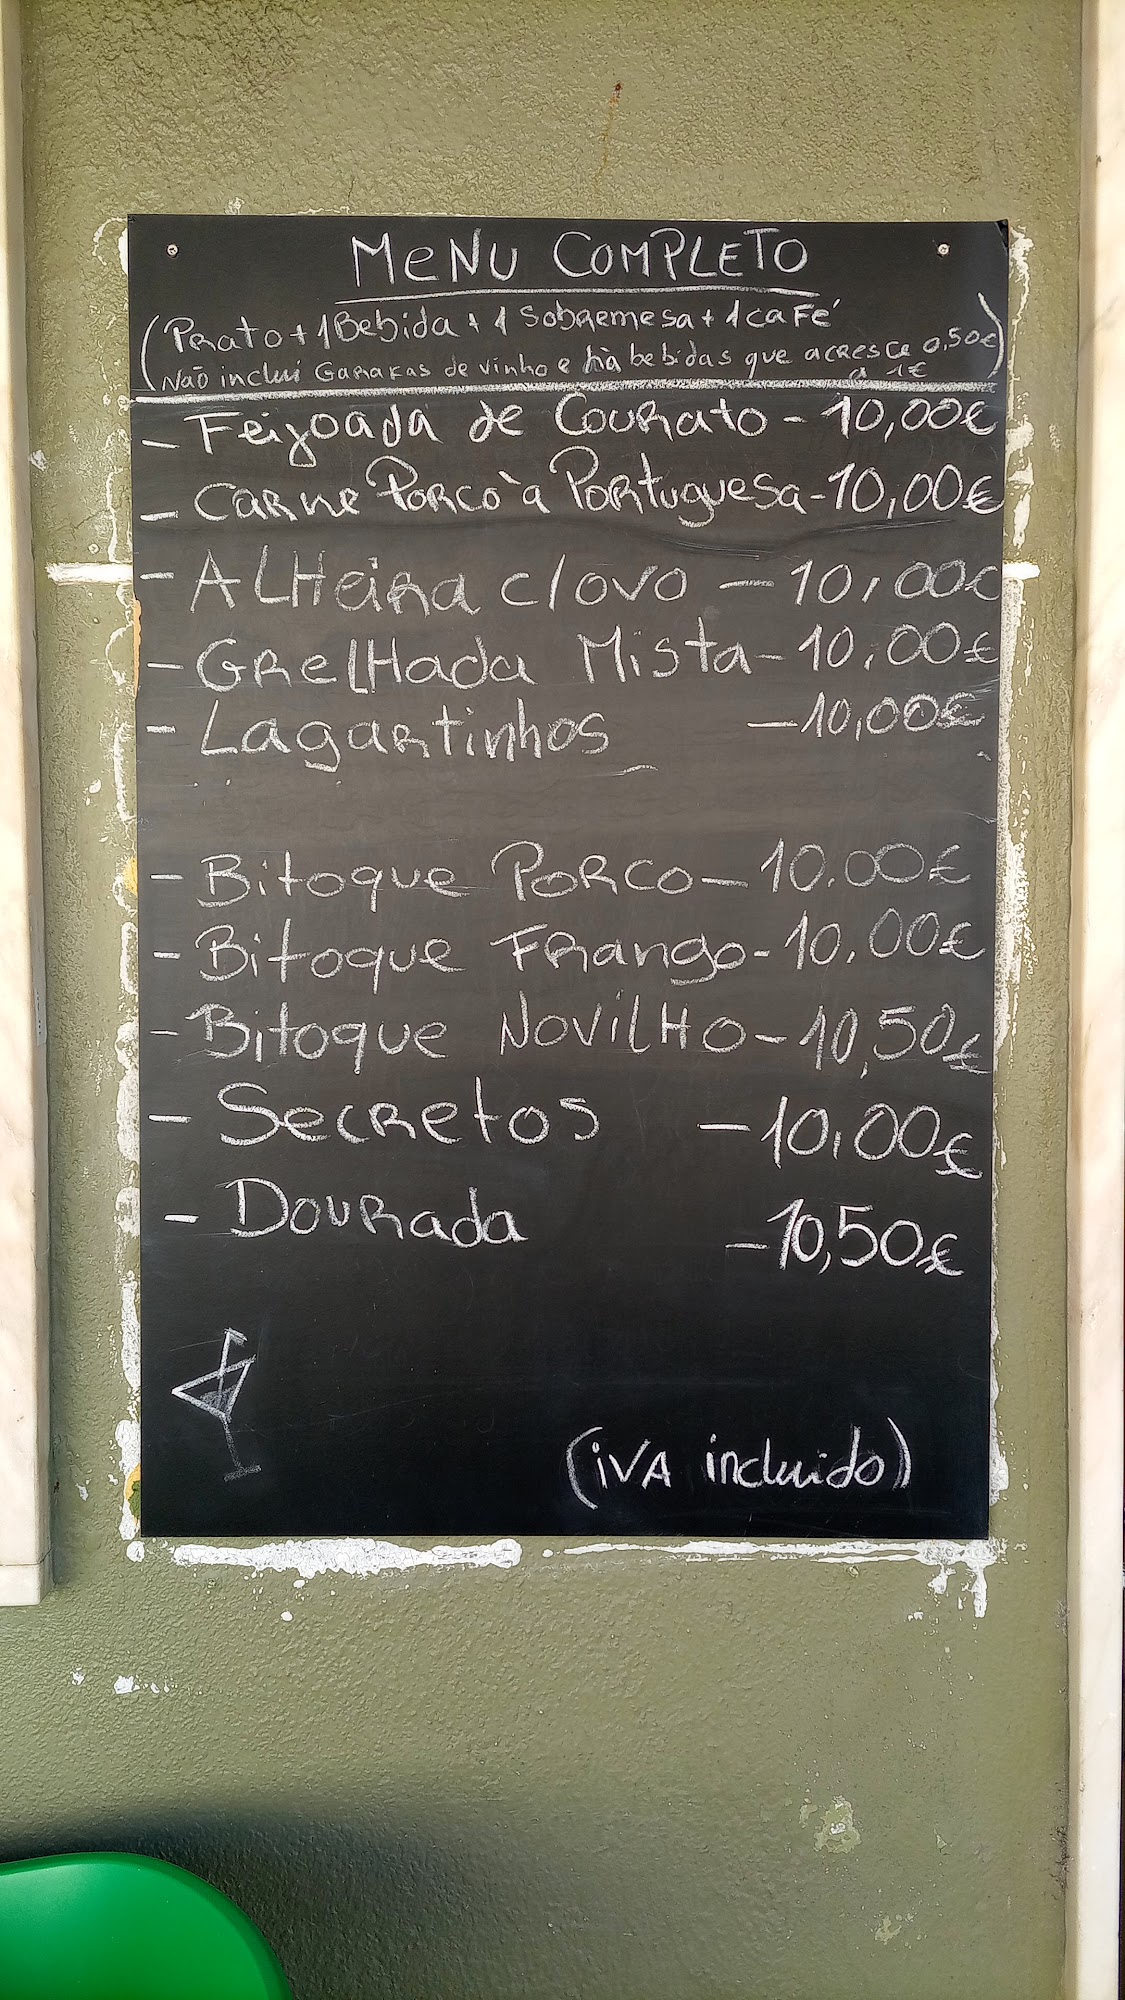 MENU COMPLETO
(Prato + 1 Bebida + 1 Sobremesa + 1 café
Não inclui Garrafas de vinho e há bebidas que acresce 0,50€)
a 1€
- Feijoada de Courato - 10,00€
- Carne Porco à Portuguesa - 10,00€
- ALHeira c/ovo - 10,00€
- GRelHada Mista - 10,00€
- Lagartinhos - 10,00€
- Bitoque Porco - 10.00€
- Bitoque Frango - 10.00€
- Bitoque NovilHo - 10,50€
- Secretos - 10,00€
- Dourada - 10,50€
(iVA incluido)